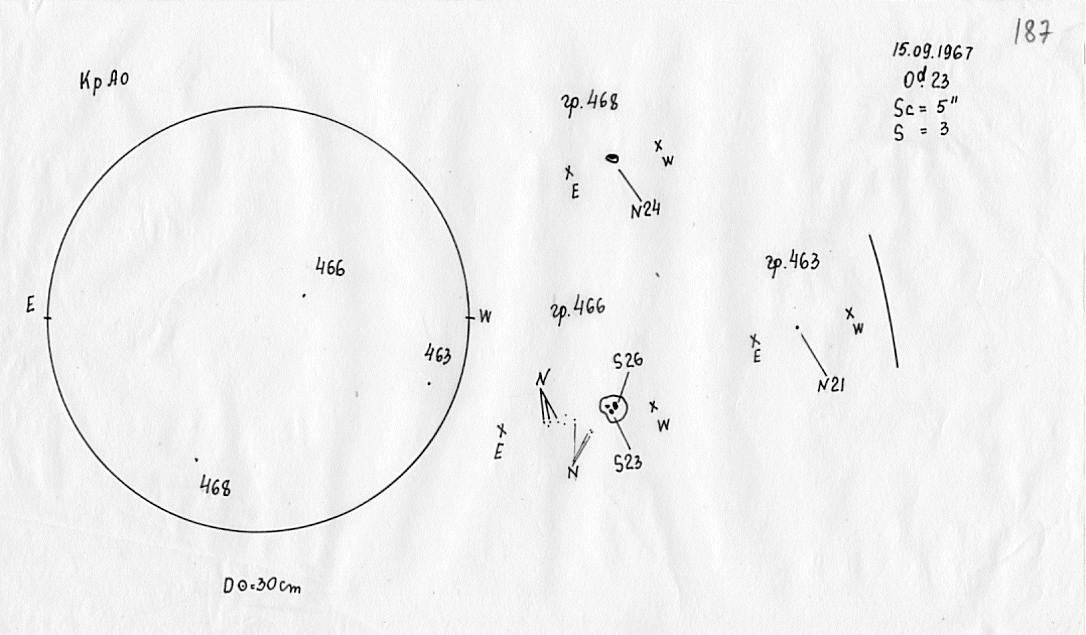 187
15.09.1967
0ᵈ.23
Sc = 5"
S = 3
КрАО
E
W
466
463
468
D⊙=30cm
гр.468
x
E
x
W
N24
гр.466
N
x
E
N
S26
S23
x
W
гр.463
x
E
x
W
N21